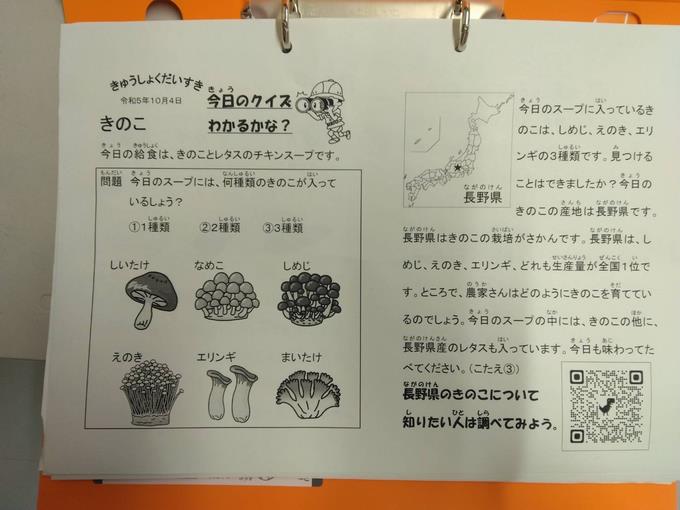 きゅうしょくだいすき
令和5年10月4日
今日のクイズ
わかるかな？
きのこ
今日の給食は、きのことレタスのチキンスープです。
問題 今日のスープには、何種類のきのこが入って
いるでしょう？
①1種類 ②2種類 ③3種類
しいたけ なめこ しめじ
えのき エリンギ まいたけ
長野県
今日のスープに入っているき
のこは、しめじ、えのき、エリ
ンギの3種類です。見つける
ことはできましたか？今日の
きのこの産地は長野県です。
長野県はきのこの栽培がさかんです。長野県は、し
めじ、えのき、エリンギ、どれも生産量が全国1位で
す。ところで、農家さんはどのようにきのこを育ててい
るのでしょう。今日のスープの中には、きのこの他に、
長野県産のレタスも入っています。今日も味わってた
べてください。（こたえ③）
長野県のきのこについて
知りたい人は調べてみよう。